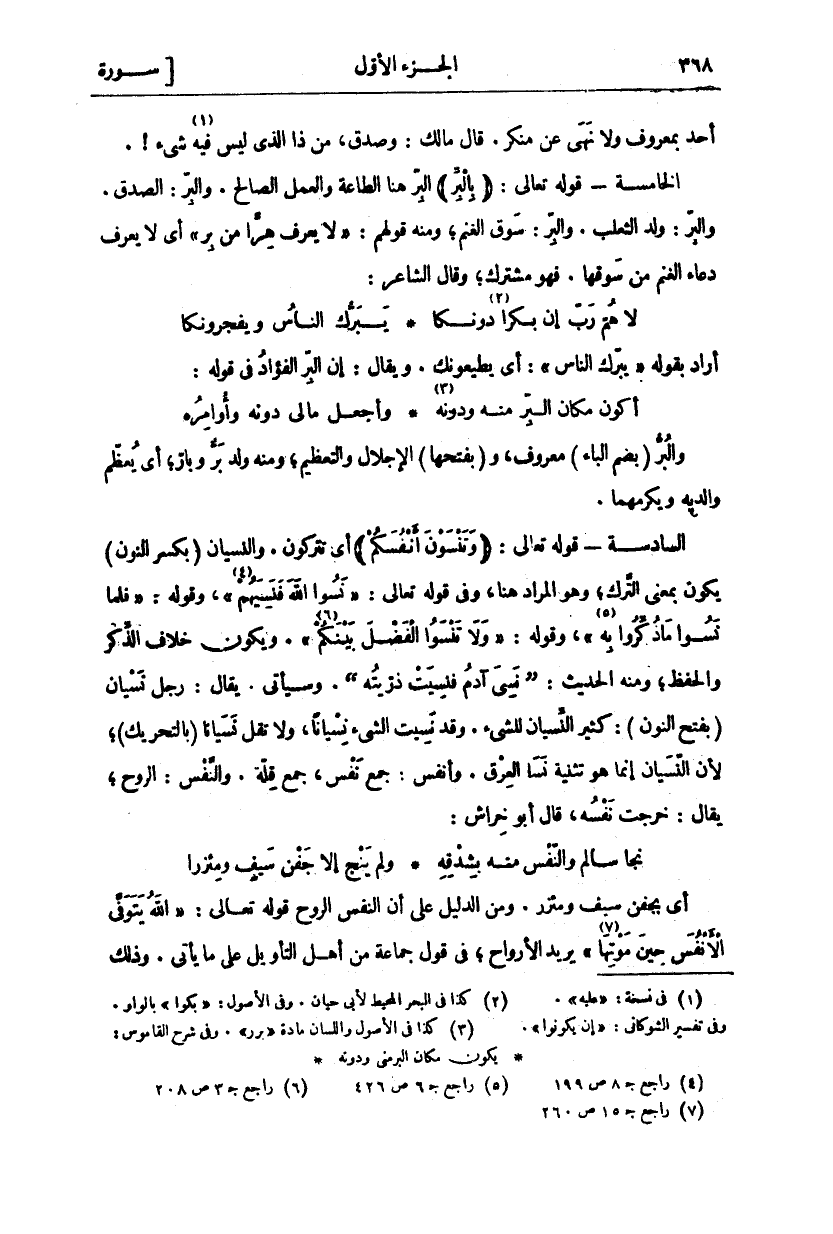 ٣٦٨ الجـزء الأوّل [ ســورة
أحد بمعروف ولا نَهَى عن منكر . قال مالك : وصدق، من ذا الذى ليس فيه (١) شىء ! .
الخامسـة — قوله تعالى : ﴿ بِالْبِرِّ ﴾ البِرّ هنا الطاعة والعمل الصالح . والبِرّ : الصدق .
والبِرّ : ولد الثعلب . والبِرّ : سَوق الغنم؛ ومنه قولهم : « لا يعرف هِرًّا من بِر » أى لا يعرف
دعاء الغنم من سَوقها . فهو مشترك؛ وقال الشاعر :
لا هُمّ رَبّ إن بـكرا (٢) دونـكا * يَـبَرُّك النـاسُ ويفجرونكا
أراد بقوله « يبرّك الناس » : أى يطيعونك . ويقال : إن البِرّ الفؤادُ فى قوله :
أكون مكان الـبِرّ منـه ودونه (٣) * وأجعـل مالى دونه وأُوامِرُه
والبُرُّ (بضم الباء) معروف، و (بفتحها) الإجلال والتعظيم؛ ومنه ولد بَرٌّ وبارّ؛ أى يُعظّم
والديه ويكرمهما .
السادسـة — قوله تعالى : ﴿ وَتَنْسَوْنَ أَنْفُسَكُمْ ﴾ أى تتركون . والنسيان (بكسر النون)
يكون بمعنى التَّرك؛ وهو المراد هنا، وفى قوله تعالى : « نَسُوا اللهَ فَنَسِيَهُمْ (٤) » ، وقوله : « فلما
نَسُـوا مَاذُكِّرُوا بِهِ (٥) »، وقوله : « وَلَا تَنْسَوُا الْفَضْلَ بَيْنَكُمْ (٦) » . ويكون خلاف الذِّكر
والحفظ؛ ومنه الحديث : ” نَسِىَ آدمُ فنسِيَتْ ذرّيتُه “ . وسـيأتى . يقال : رجل نَسْيان
(بفتح النون) : كثير النِّسيان للشىء . وقد نَسِيت الشىء نِسْيانًا، ولا تقل نَسَيانا (بالتحريك)؛
لأن النَّسَيان إنما هو تثنية نَسَا العِرْق . وأنفس : جمع نَفْس، جمع قِلّة . والنَّفْس : الروح ؛
يقال : خرجت نَفْسُه، قال أبو خِراش :
نجا سـالم والنَّفْس منـه بِشِدْقِه * ولم يَنْج إلا جَفْنَ سَيفٍ ومِئزرا
أى بجفن سيف ومئزر . ومن الدليل على أن النفس الروح قوله تعـالى : « اللهُ يَتَوَفَّى
الْأَنْفُسَ حِينَ مَوْتِهَا (٧) » يريد الأرواح ؛ فى قول جماعة من أهـل التأويل على ما يأتى . وذلك
(١) فى نسخة : «عليه» . (٢) كذا فى البحر المحيط لأبى حيان . وفى الأصول : «بكوا» بالواو .
وفى تفسير الشوكانى : «إن يكونوا» . (٣) كذا فى الأصول واللسان مادة «برر» . وفى شرح القاموس :
* يكون مكان البر منى ودونه *
(٤) راجع جـ ٨ ص ١٩٩ (٥) راجع جـ ٦ ص ٤٢٦ (٦) راجع جـ ٣ ص ٢٠٨
(٧) راجع جـ ١٥ ص ٢٦٠